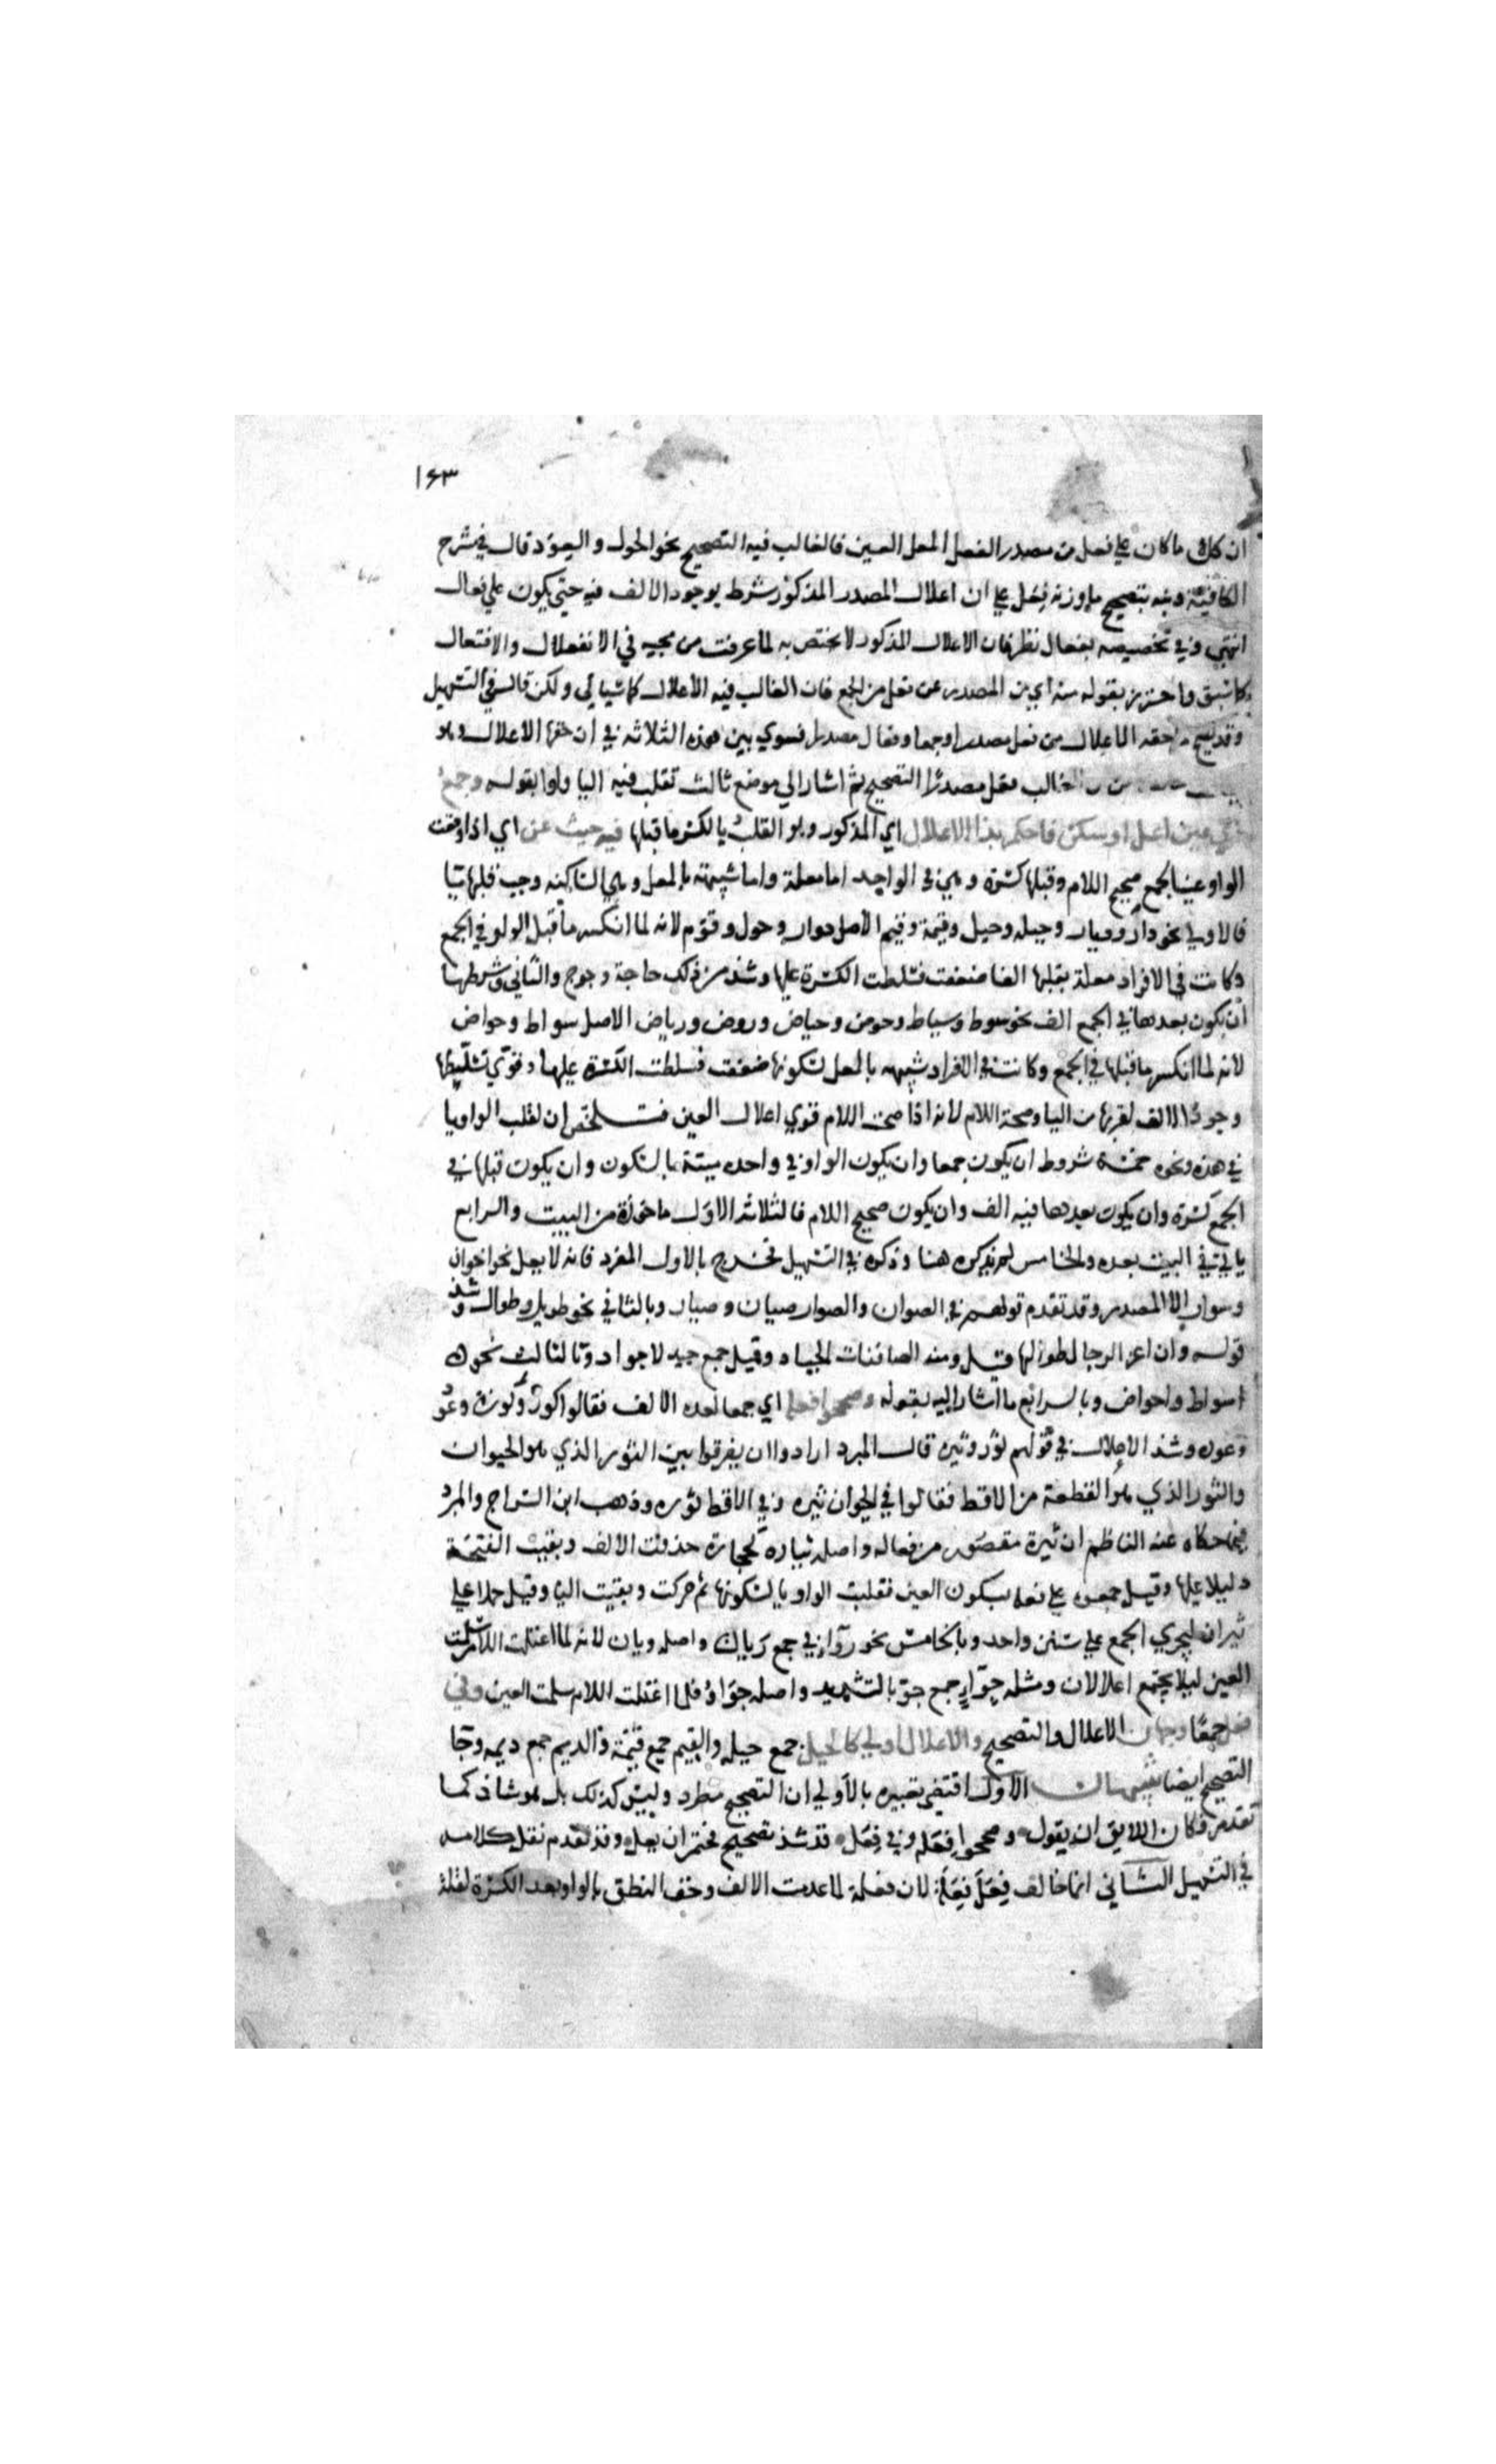 ١٤٣
ان كل ما كان على فعل من مصدر الفعل المعل العين فالغالب فيه التصحيح نحو الحول والعود قال في شرح
الكافية ونبه بتصحيح ما وزنه فعل على ان اعلال المصدر المذكور شرط بوجود الالف فيه حتى يكون على فعال
انتهى وفي تخصيصه بفعال نظر فان الاعلال المذكور لا يختص به لما عرفت من مجيه في الانفعال والافتعال
كما سبق واحترز بقوله منه اي من المصدر عن فعل من الجمع فان الغالب فيه الاعلال كما سياتي ولكن قال في التسهيل
وقد يصح ما حقه الاعلال من فعل مصدرا وجمعا وفعال مصدرا فسوي بين هذه الثلاثة في ان حقها الاعلال وهو
الغالب فعل مصدرا التصحيح ثم اشار الي موضع ثالث تقلب فيه اليا واوا بقوله وجمع
ذي عين اعل او سكن فاحكم بذا الاعلال اي المذكور وهو القلب يا لكسر ما قبلها فيه حيث عن اي اذا وقعت
الواو عينا لجمع صحيح اللام وقبلها كسرة وهي في الواحد اما معلة واما شبيهة بالمعل وهي الساكنه وجب قلبها يا
فالاولى نحو دار وديار وحيله وحيل وقيمة وقيم الاصل دوار وحول وقوم لانه لما انكسر ما قبل الواو في الجمع
وكانت في الافراد معلة بقلبها الفا ضعفت فسلطت الكسرة عليها وشذ من ذلك حاجة وحوج والثاني وشرطها
ان يكون بعدها في الجمع الف نحو سوط وسياط وحوض وحياض وروض ورياض الاصل سواط وحواض
لانه لما انكسر ما قبلها في الجمع وكانت في الافراد شبيهه بالمعل لسكونها ضعفت فسلطت الكسرة عليها وقوي تسليطها
وجود الالف لقربها من اليا وصحة اللام لانه اذا صحت اللام قوي اعلال العين فتلخص ان لقلب الواو يا
في هذه ونحوه خمسة شروط ان يكون جمعا وان يكون الواو في واحده ميتة بالسكون وان يكون قبلها في
الجمع كسرة وان يكون بعدها فيه الف وان يكون صحيح اللام فالثلاثة الاول ماخوذة من البيت والرابع
ياتي في البيت بعده والخامس لم يذكره هنا وذكره في التسهيل فخرج بالاول المفرد فانه لا يعل نحو اخوان
وسوار الا المصدر وقد تقدم قولهم في الصوان والصوار صيان وصيار وبالثاني نحو طويل وطوال وشذ
قوله وان اعزا الرجال طيالها قيل ومنه الصافنات الجياد وقيل جمع جيد لا جواد وبالثالث نحو
اسواط واحواض وبالرابع ما اشار اليه بقوله وصححوا فعله اي جمعا لعدم الالف فقالوا كوز وكوزة وعود
وعوده وشذ الاعلال في قولهم ثور وثيرة قال المبرد ارادوا ان يفرقوا بين الثور الذي هو الحيوان
والثور الذي هو القطعة من الاقط فقالوا في الحيوان ثيره وفي الاقط ثوره وذهب ابن السراج والمبرد
فيما حكاه عنه الناظم ان ثيرة مقصور من فعاله واصله ثياره كحجارة حذفت الالف وبقيت الفتحة
دليلا عليها وقيل جمعوه على فعله بسكون العين فقلبت الواو يا لسكونها ثم حركت وبقيت اليا وقيل حملا على
ثيران ليجري الجمع على سنن واحد وبالخامس نحو رواء في جمع ريان واصله رويان لانه لما اعتلت اللام سلمت
العين ليلا يجتمع اعلالان ومثله جواء جمع جو بالتشديد واصله جواو فلما اعتلت اللام سلمت العين وفي
فعل جمعا وجهان الاعلال والتصحيح والاعلال اولى كالحيل جمع حيله والقيم جمع قيمة والديم جمع ديمه وجا
التصحيح ايضا تنبيهان الاول اقتضى تعبيره بالاولى ان التصحيح مطرد وليس كذلك بل هو شاذ كما
تقدم فكان اللايق ان يقول وصححوا فعله وفي فعل قد شذ تصحيح فحتم ان يعل وقد تقدم نقل كلامه
في التسهيل الثاني انما خالف فعل فعلة لان فعلة لما عدمت الالف وخف النطق بالواو بعد الكسرة لقلة